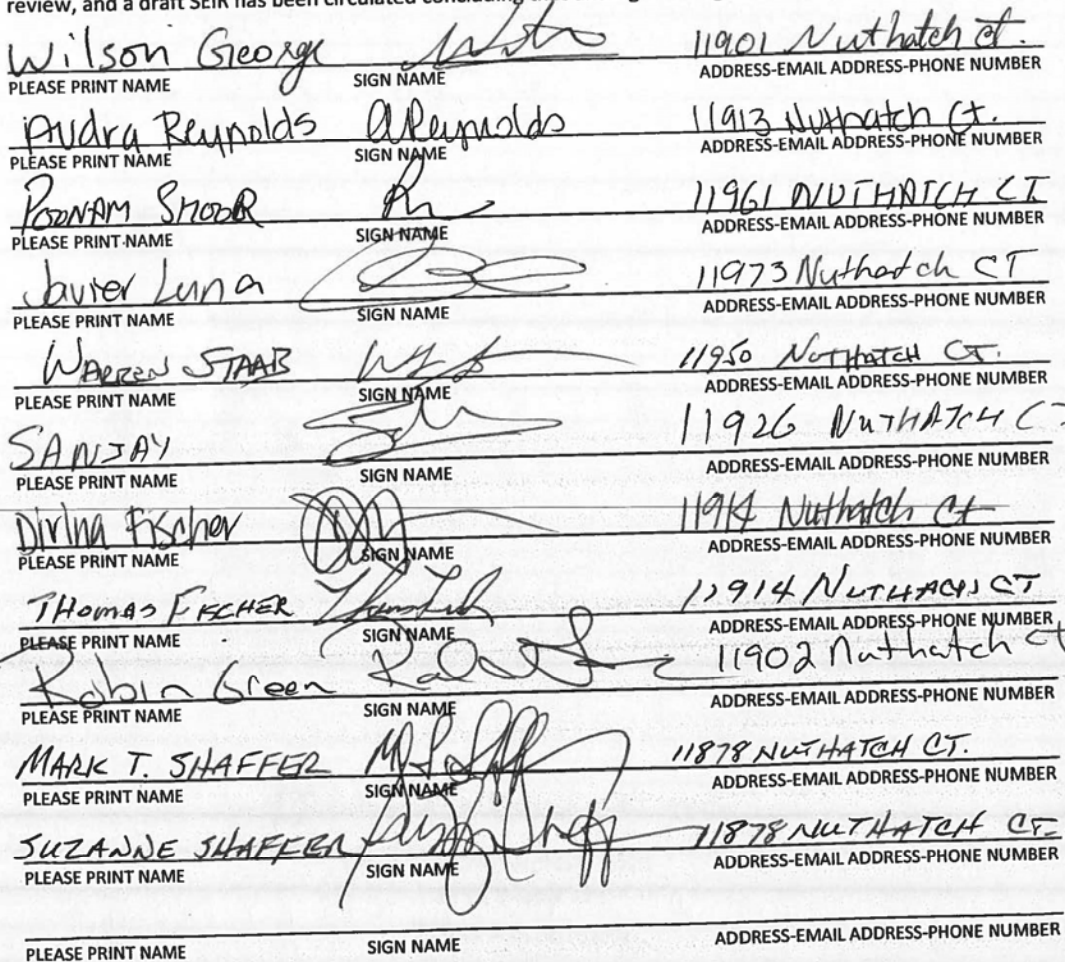 review, and a draft SEIR has been circulated
Wilson George 11901 Nuthatch ct.
PLEASE PRINT NAME SIGN NAME ADDRESS-EMAIL ADDRESS-PHONE NUMBER
Audra Reynolds AReynolds 11913 Nuthatch Ct.
PLEASE PRINT NAME SIGN NAME ADDRESS-EMAIL ADDRESS-PHONE NUMBER
POONAM 11961 NUTHATCH CT
PLEASE PRINT NAME SIGN NAME ADDRESS-EMAIL ADDRESS-PHONE NUMBER
Javier Luna 11973 Nuthatch CT
PLEASE PRINT NAME SIGN NAME ADDRESS-EMAIL ADDRESS-PHONE NUMBER
WARREN STAAB 11950 NUTHATCH CT.
PLEASE PRINT NAME SIGN NAME ADDRESS-EMAIL ADDRESS-PHONE NUMBER
SANJAY 11926 NUTHATCH C
PLEASE PRINT NAME SIGN NAME ADDRESS-EMAIL ADDRESS-PHONE NUMBER
Fischer 11914 Nuthatch Ct
PLEASE PRINT NAME SIGN NAME ADDRESS-EMAIL ADDRESS-PHONE NUMBER
THOMAS FISCHER 11914 NUTHATCH CT
PLEASE SIGN NAME ADDRESS-EMAIL ADDRESS-PHONE NUMBER
Robin Green 11902 Nuthatch Ct
PLEASE PRINT NAME SIGN NAME ADDRESS-EMAIL ADDRESS-PHONE NUMBER
MARK T. SHAFFER 11878 NUTHATCH CT.
PLEASE PRINT NAME SIGN NAME ADDRESS-EMAIL ADDRESS-PHONE NUMBER
SUZANNE SHAFFER 11878 NUTHATCH CT.
PLEASE PRINT NAME SIGN NAME ADDRESS-EMAIL ADDRESS-PHONE NUMBER
PLEASE PRINT NAME SIGN NAME ADDRESS-EMAIL ADDRESS-PHONE NUMBER